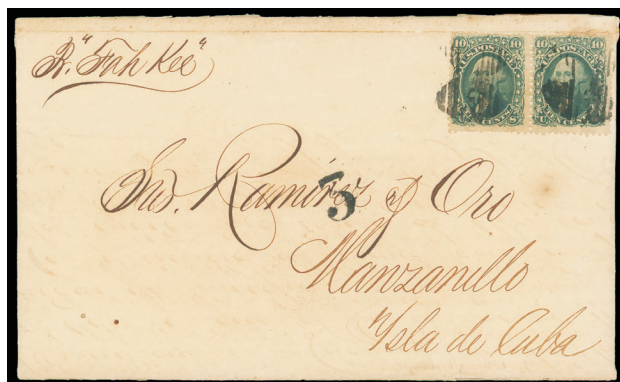 P. "Fah Kee"
10 U.S. POSTAGE 10
10 U.S. POSTAGE 10
Sres. Ramírez y Oro
5
Manzanillo
Ysla de Cuba